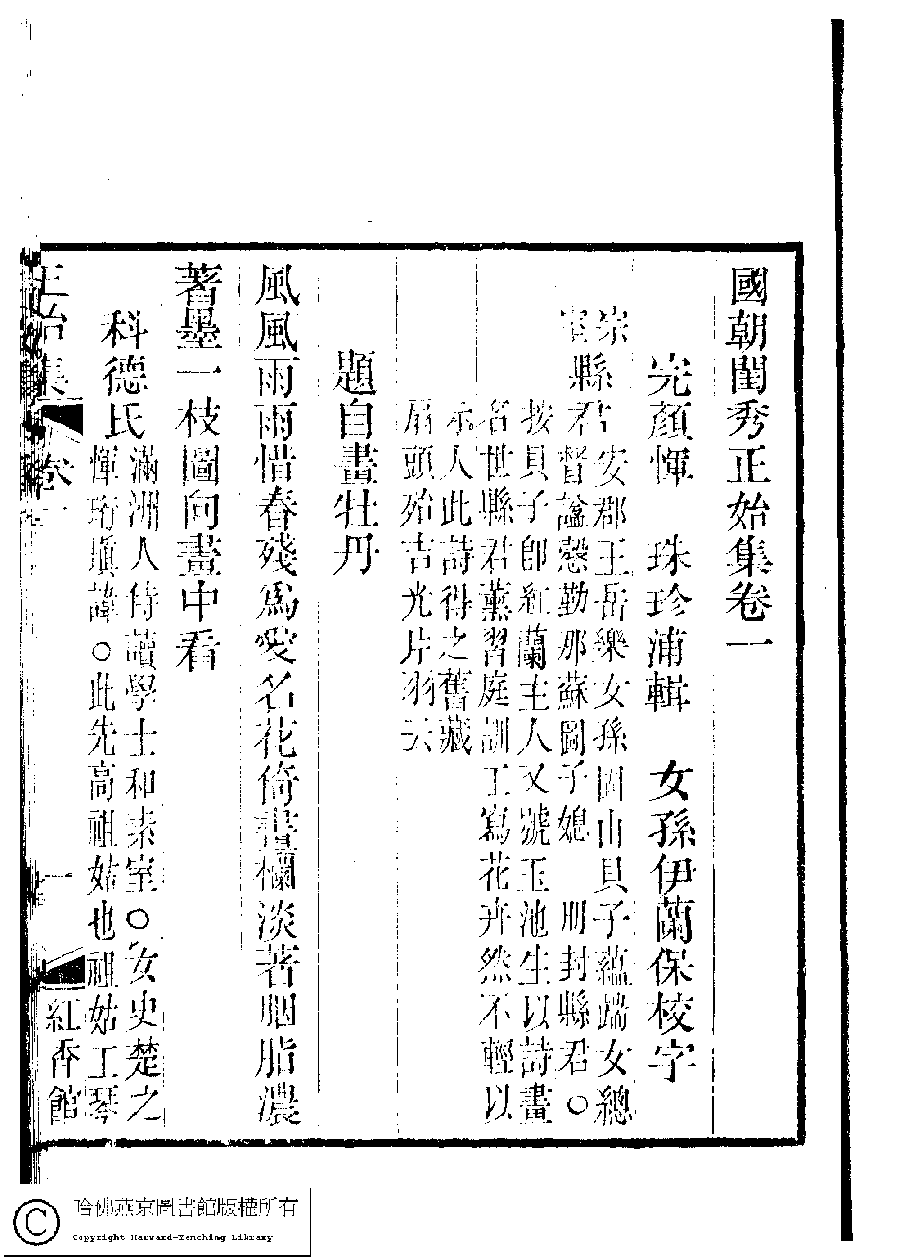 國朝閨秀正始集卷一
完顏惲　珠珍浦輯　女孫伊蘭保校字
宗室縣君
安郡王岳樂女孫固山貝子蘊端女總
督諡愨勤那蘇圖子媳　冊封縣君○
按貝子卽紅蘭主人又號玉池生以詩畫
名世縣君薰習庭訓工寫花卉然不輕以
示人此詩得之舊藏
扇頭殆吉光片羽云
題自畫牡丹
風風雨雨惜春殘爲愛名花倚畫欄淡著胭脂濃
著墨一枝圖向畫中看
科德氏
滿洲人侍讀學士和素室○女史楚之
惲珩瑱諱○此先高祖姑也祖姑工琴
正始集　卷一　一　紅香館
哈佛燕京圖書館版權所有
Copyright Harvard-Yenching Library